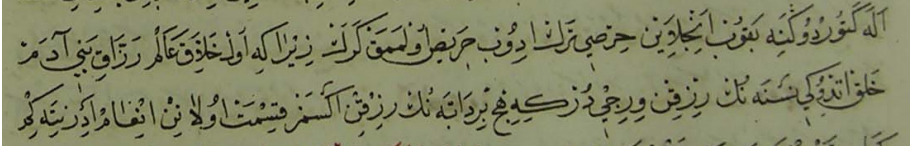 اَلَه كَتُورْدُوكِنَه بَقُوبْ اَنْجِلَاوِينْ حِرْصِى تَرْكْ اِدُوبْ حَرِيصْ اُولْمَمَقْ كَرَكْ زِيرَا كِه اَوَلْ خَلَّاقِ عَالَمْ رَزَّاقِ بَنِى آدَمْ دُرْ
خَلْقْ اِتْدُوكِى نَسْنَه نُكْ رِزْقِنْ وِرِجِى دُرْ كِه هِيچْ بِرْ دَابَّه نُكْ رِزْقِنْ اَكْسَمَزْ قِسْمَتْ اُولَانِنْ اِنْعَامْ اِدَرْ نِتَه كِمْ